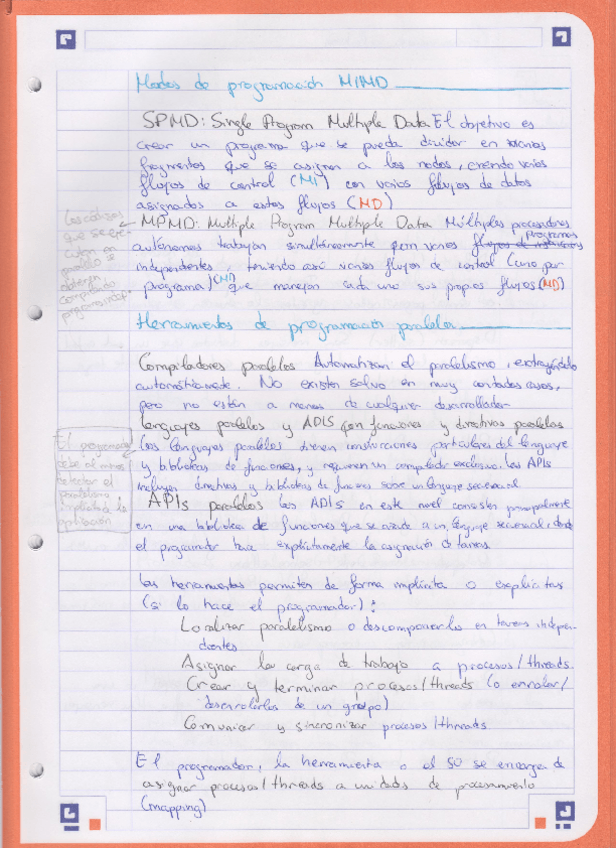 Modos de programación MIMD
SPMD: Single Program Multiple Data El objetivo es
crear un programa que se pueda dividir en varios
fragmentos que se asignan a los nodos, creando varios
flujos de control (MI) con varios flujos de datos
asignados a estos flujos (MD)
Los códigos
que se eje-
cutan en
paralelo se
obtienen
compilando
programas indep.
MPMD: Multiple Program Multiple Data Múltiples procesadores
autónomos trabajan simultáneamente con varios flujos de instrucciones Programas
independientes, teniendo así varios flujos de control (uno por
programa) (MI) que manejan cada uno sus propios flujos (MD)
Herramientas de programación paralela
Compiladores paralelos Automatizan el paralelismo, extrayéndolo
automáticamente. No existen salvo en muy contados casos,
pero no están a manos de cualquier desarrollador
Lenguajes paralelos y APIS con funciones y directivas paralelas
El programador
debe al menos
detectar el
paralelismo
implícito a la
aplicación
Los lenguajes paralelos tienen instrucciones particulares del lenguaje
y bibliotecas de funciones, y requieren un compilador exclusivo. Las APIs
incluyen directivas y bibliotecas de funciones sobre un lenguaje secuencial
APIs paralelas Las APIS en este nivel consisten principalmente
en una biblioteca de funciones que se añade a un lenguaje secuencial, donde
el programador hace explícitamente la asignación de tareas
Las herramientas permiten de forma implícita o explícitas
(si lo hace el programador):
Localizar paralelismo o descomponerlo en tareas indepen-
dientes
Asignar la carga de trabajo a procesos/threads.
Crear y terminar procesos/threads (o enrolar/
desenrolarlos de un grupo)
Comunicar y sincronizar procesos/threads
El programador, la herramienta o el SO se encarga de
asignar procesos/threads a unidades de procesamiento
(mapping)